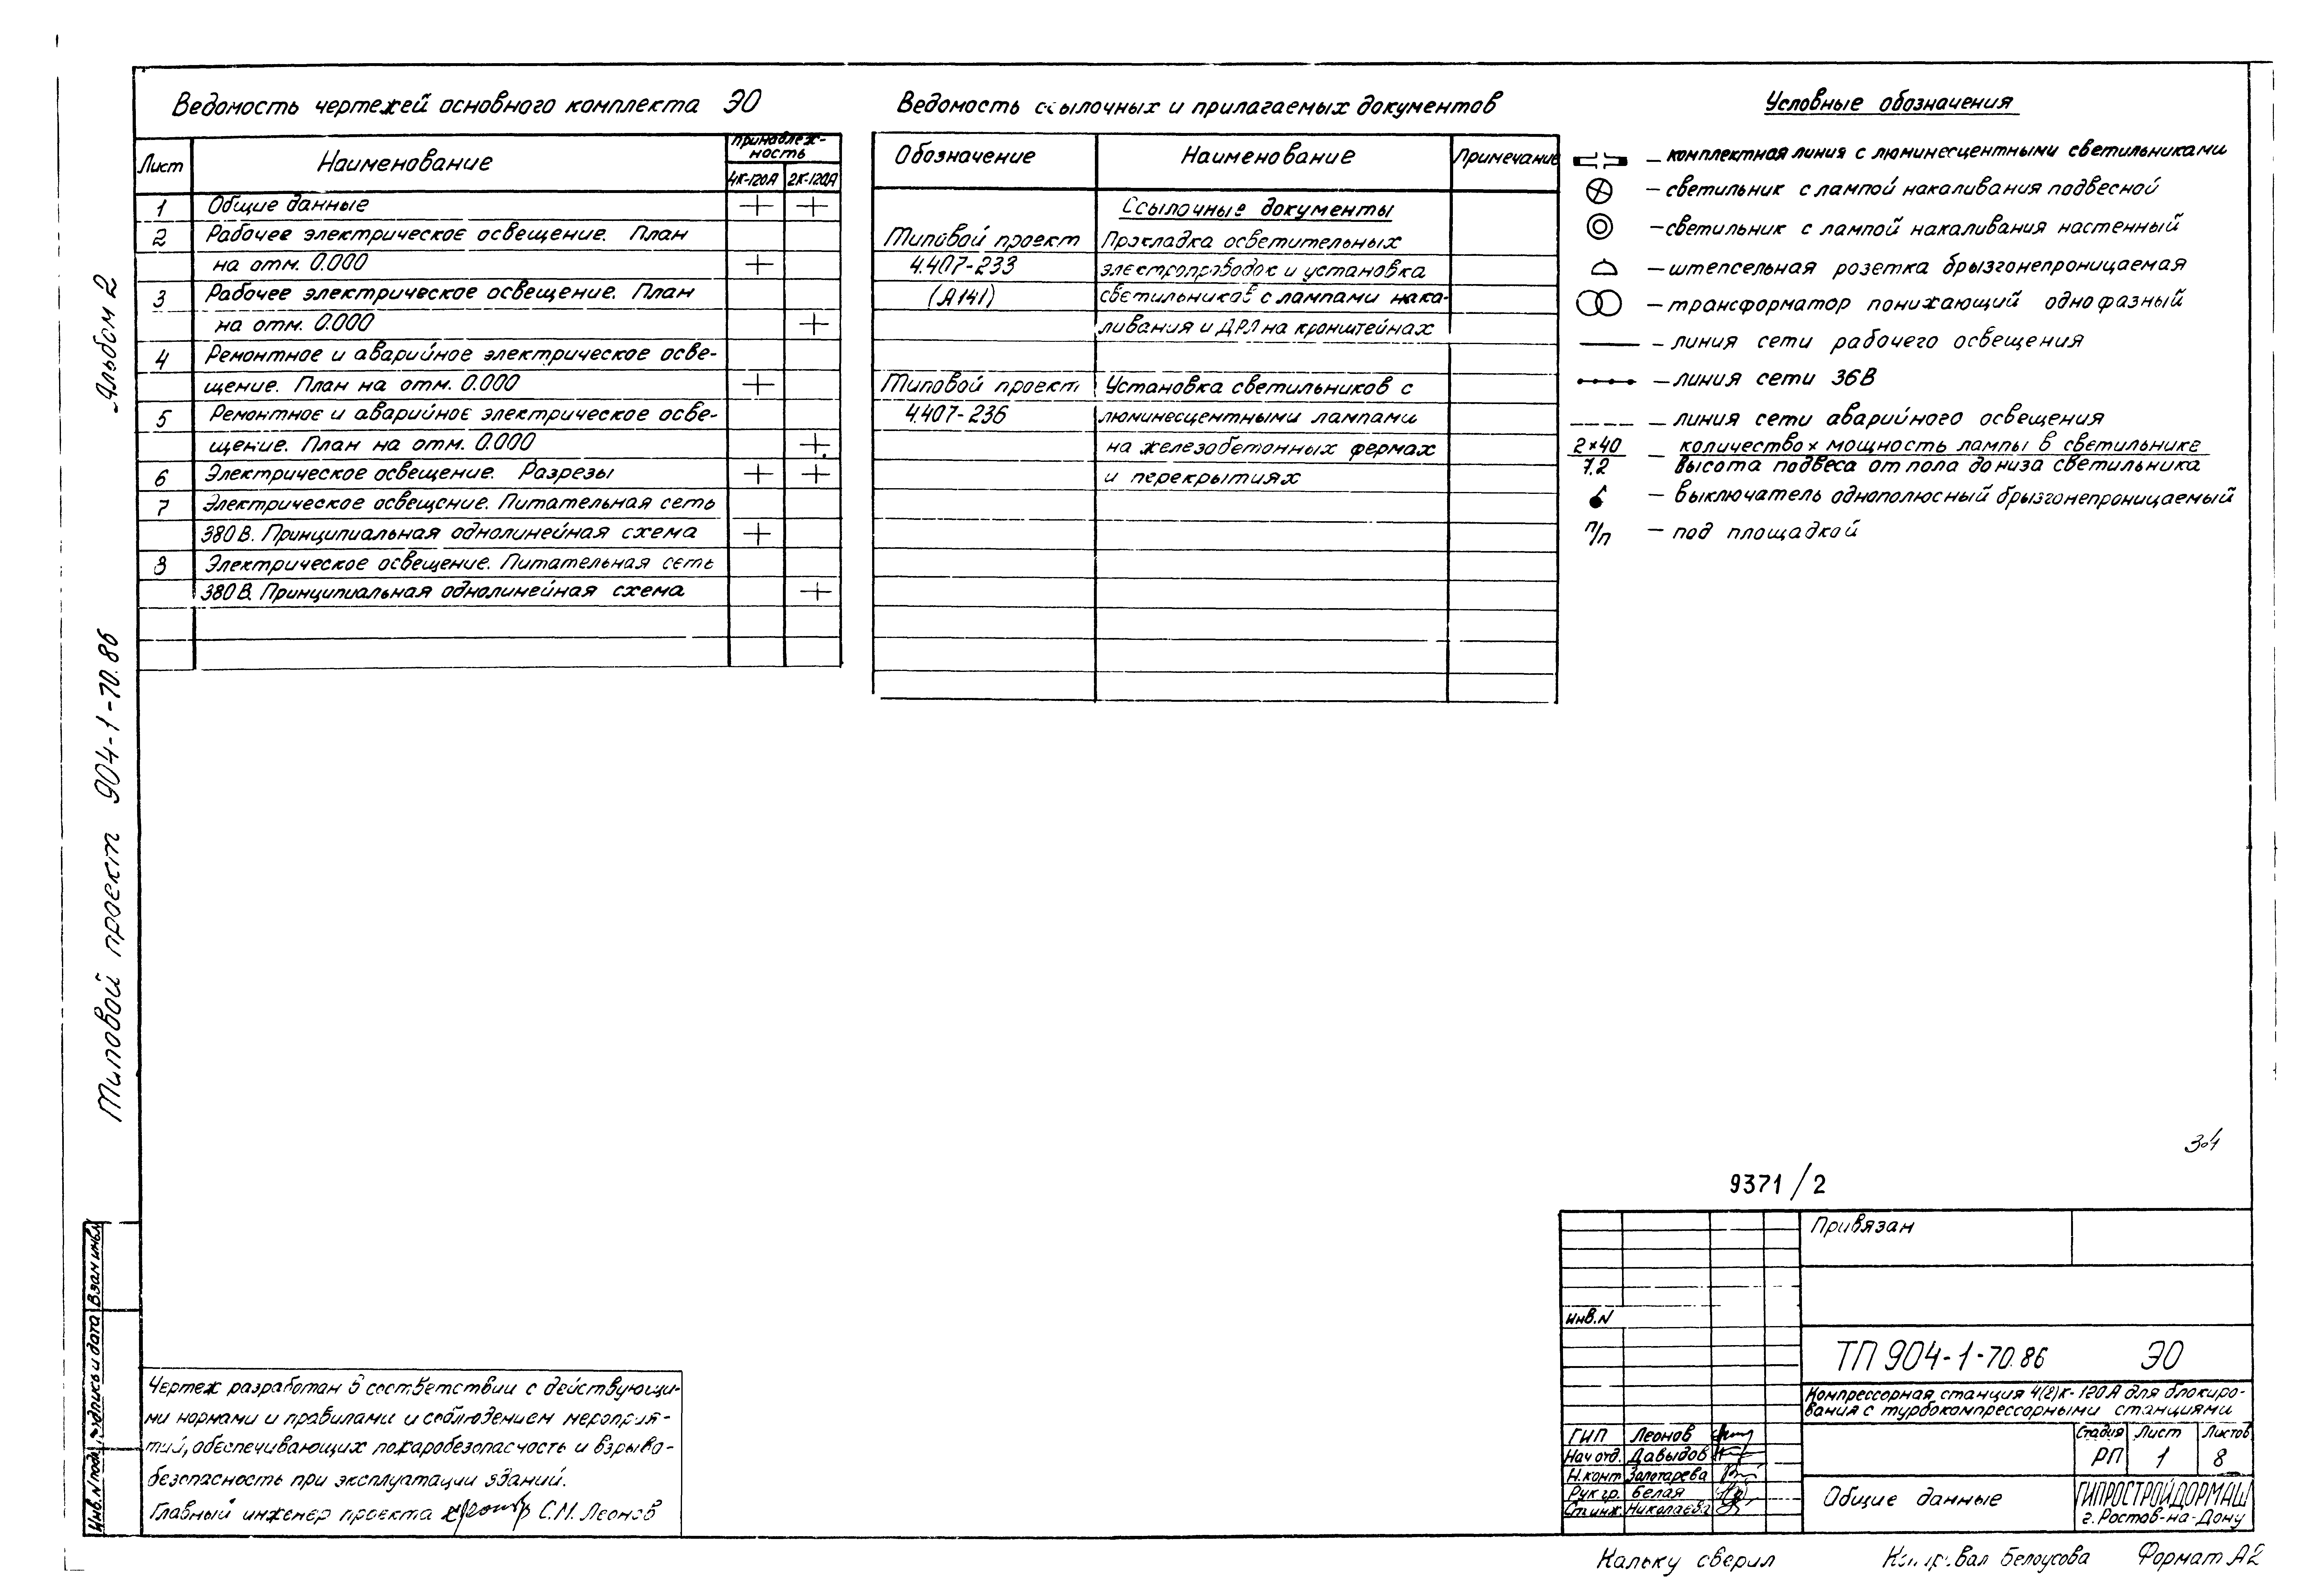 Ведомость чертежей основного комплекта ЭО
Лист Наименование принадлеж-
ность
4К-120А 2К-120А
1 Общие данные + +
2 Рабочее электрическое освещение. План
на отм. 0.000 +
3 Рабочее электрическое освещение. План
на отм. 0.000 +
4 Ремонтное и аварийное электрическое осве-
щение. План на отм. 0.000 +
5 Ремонтное и аварийное электрическое осве-
щение. План на отм. 0.000 +
6 Электрическое освещение. Разрезы + +
7 Электрическое освещение. Питательная сеть
380 В. Принципиальная однолинейная схема +
8 Электрическое освещение. Питательная сеть
380 В. Принципиальная однолинейная схема +
Ведомость ссылочных и прилагаемых документов
Обозначение Наименование Примечание
Ссылочные документы
Типовой проект Прокладка осветительных
4.407-233 электропроводок и установка
(А141) светильников с лампами нака-
ливания и ДРЛ на кронштейнах
Типовой проект Установка светильников с
4.407-236 люминесцентными лампами
на железобетонных фермах
и перекрытиях
Условные обозначения
– комплектная линия с люминесцентными светильниками
– светильник с лампой накаливания подвесной
– светильник с лампой накаливания настенный
– штепсельная розетка брызгонепроницаемая
– трансформатор понижающий однофазный
– линия сети рабочего освещения
– линия сети 36В
– линия сети аварийного освещения
2×40 – количество × мощность лампы в светильнике
7.2 высота подвеса от пола до низа светильника
– выключатель однополюсный брызгонепроницаемый
п/п – под площадкой
Альбом 2
Типовой проект 904-1-70.86
Взам инв.N
Подпись и дата
Инв.N подл.
Чертеж разработан в соответствии с действующи-
ми нормами и правилами и соблюдением мероприя-
тий, обеспечивающих пожаробезопасность и взрыво-
безопасность при эксплуатации зданий.
Главный инженер проекта С.М. Леонов
34
9371/2
Привязан
Инв.N
ТП 904-1-70.86 ЭО
Компрессорная станция 4(2)К-120А для блокиро-
вания с турбокомпрессорными станциями
ГИП Леонов
Нач отд. Давыдов
Н.конт Золотарева
Рук гр. Белая
Ст инж. Николаева
Стадия Лист Листов
РП 1 8
Общие данные
ГИПРОСТРОЙДОРМАШ
г. Ростов-на-Дону
Кальку сверил
Копировал Белоусова
Формат А2